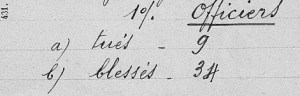 431.
1º/. Officiers
a) tués - 9
b) blessés - 34